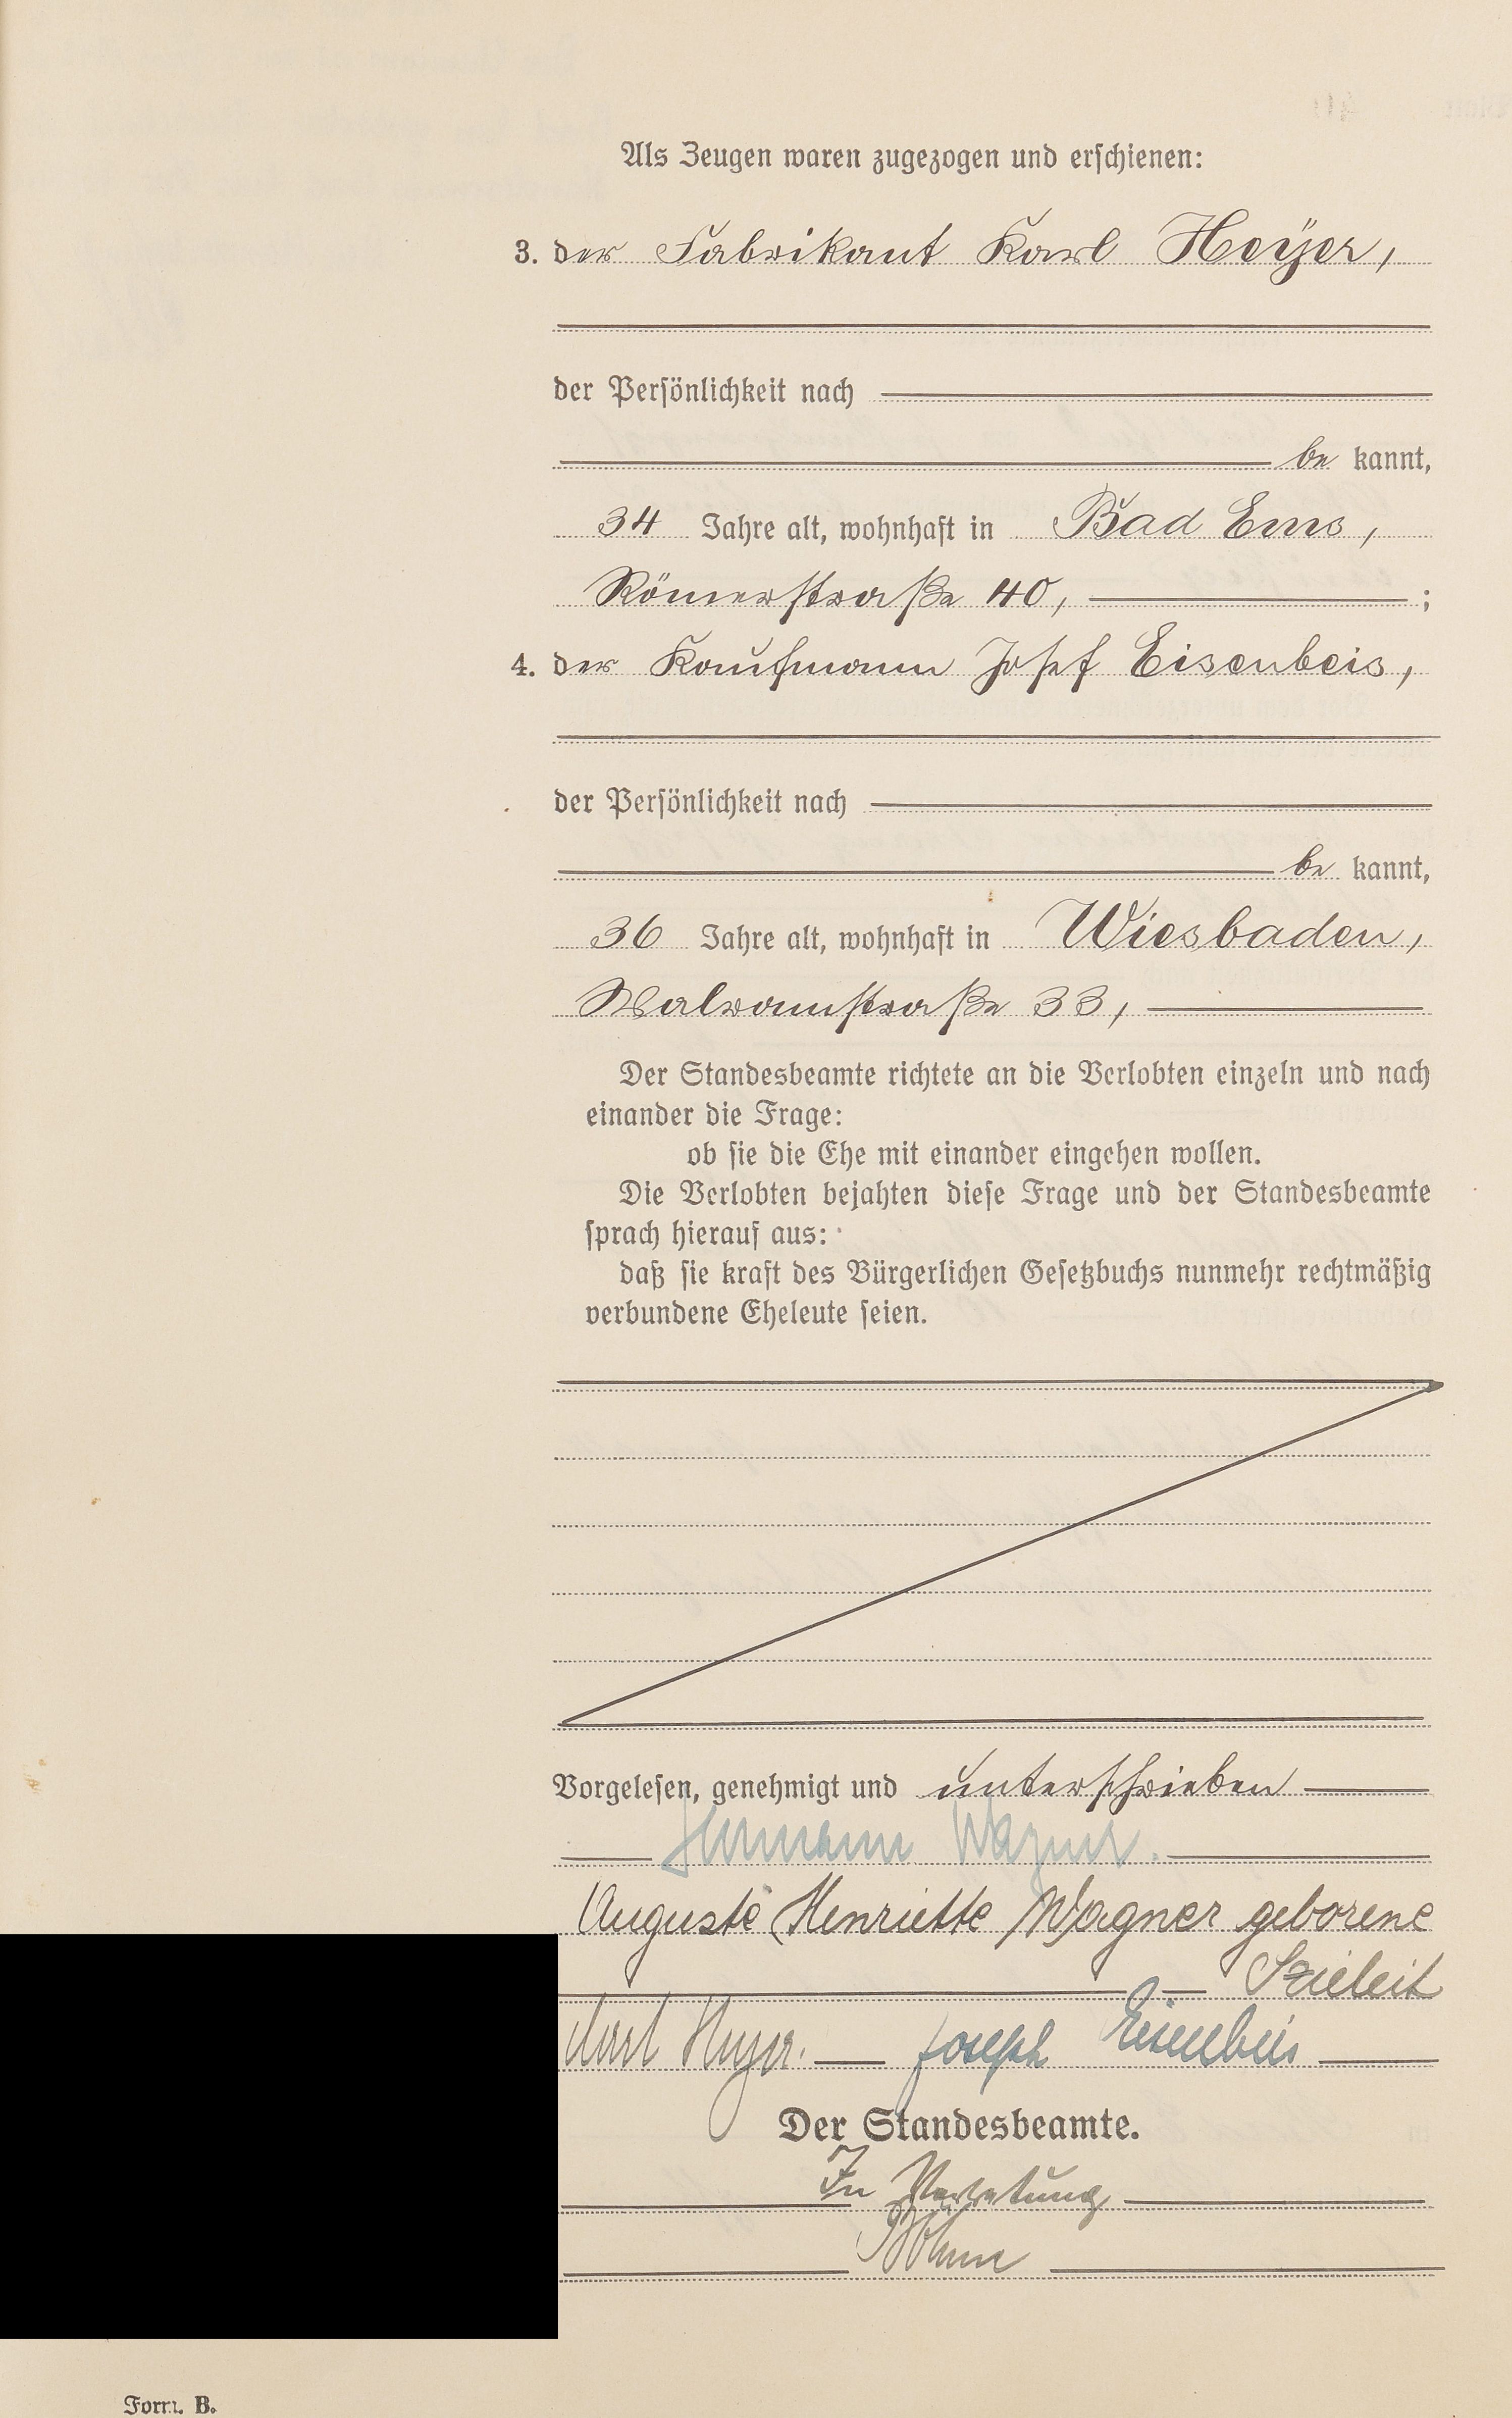 Als Zeugen waren zugezogen und erschienen:
3. der Fabrikant Karl Heÿer,
der Persönlichkeit nach
be kannt,
34 Jahre alt, wohnhaft in Bad Ems,
Römerstraße 40, ;
4. der Kaufmann Josef Eisenbeis,
der Persönlichkeit nach
be kannt,
36 Jahre alt, wohnhaft in Wiesbaden,
Walramstraße 33,
Der Standesbeamte richtete an die Verlobten einzeln und nach
einander die Frage:
ob sie die Ehe mit einander eingehen wollen.
Die Verlobten bejahten diese Frage und der Standesbeamte
sprach hierauf aus:
daß sie kraft des Bürgerlichen Gesetzbuchs nunmehr rechtmäßig
verbundene Eheleute seien.
Vorgelesen, genehmigt und unterschrieben
Hermann Wagner.
Auguste Henriette Wagner geborene
Szieleit
Karl Heyer. Joseph Eisenbeis
Der Standesbeamte.
In Vertretung
Form. B.